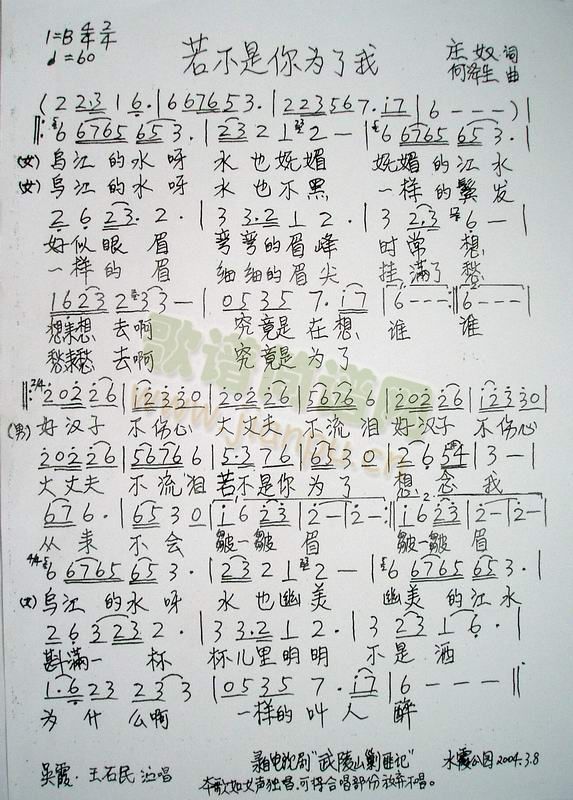 1=B 4/4 2/4
♩=60
若不是你为了我
庄奴 词
何泽生 曲
(2 2·3 1 6· | 6 67 65 3· | 2 2 3 5 6 7· i7 | 6 - - - )|
6 6765 65 3· | 23 2 1 2 — | 6 6765 65 3· |
(女) 乌江的水呀 水也妩媚 妩媚的江水
(女) 乌江的水呀 水也不黑 一样的鬓发
2 6 23 2· | 3 3·2 1 2· | 3 2·3 6 — |
好似眼眉 弯弯的眉峰 时常想
一样的眉 细细的眉尖 挂满了愁
1623 2 33 — | 0535 7· i7 | 6 - - - :| 6 - - - |
想来想去啊 究竟是在想谁 谁
愁来愁去啊 究竟是为了
2/4 202 26 | i23 30 | 202 26 | 5676 6 | 202 26 | i23 30 |
(男) 好汉子 不伤心 大丈夫 不流泪 好汉子 不伤心
202 26 | 5676 6 | 5·3 76 | 63 50 | 2 6 54 | 3 - |
大丈夫 不流泪 若不是你为了 想念我
67 6· | 65 30 | i6 23 | 2- | 2- :| i6 23 | 2- | 2- |
从来不会 皱一皱眉 皱一皱眉
4/4 6 6765 65 3· | 23 2 1 2 — | 6 6765 65 3· |
(女) 乌江的水呀 水也幽美 幽美的江水
26 3 23 2· | 3 3·2 1 2· | 3 23 1 6· |
斟满一杯 杯儿里明明 不是酒
1·6 23 2 33 | 0535 7· i7 | 6 - - - |
为什么啊 一样的叫人醉
吴霞·王石民 演唱
录自电视剧"武陵山剿匪记"
水霞公园 2004.3.8
本歌如女声独唱,可将合唱部份放弃不唱。